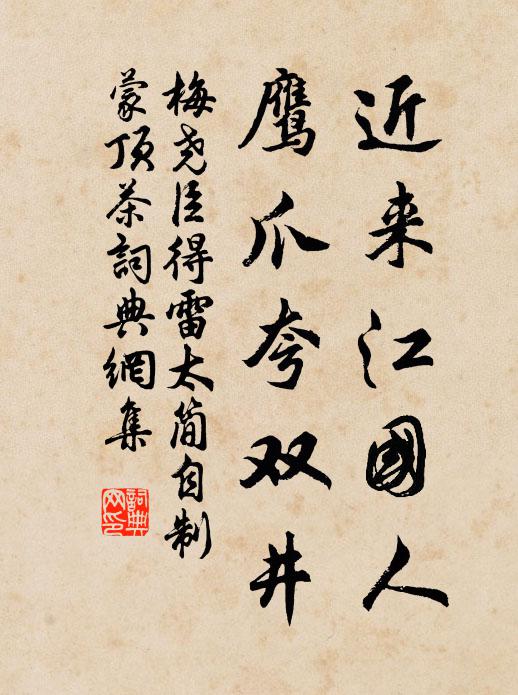 近来江國人
鷹爪夸双井
梅尧臣得雷太简自制
蒙顶茶詞典網集
詞典网印